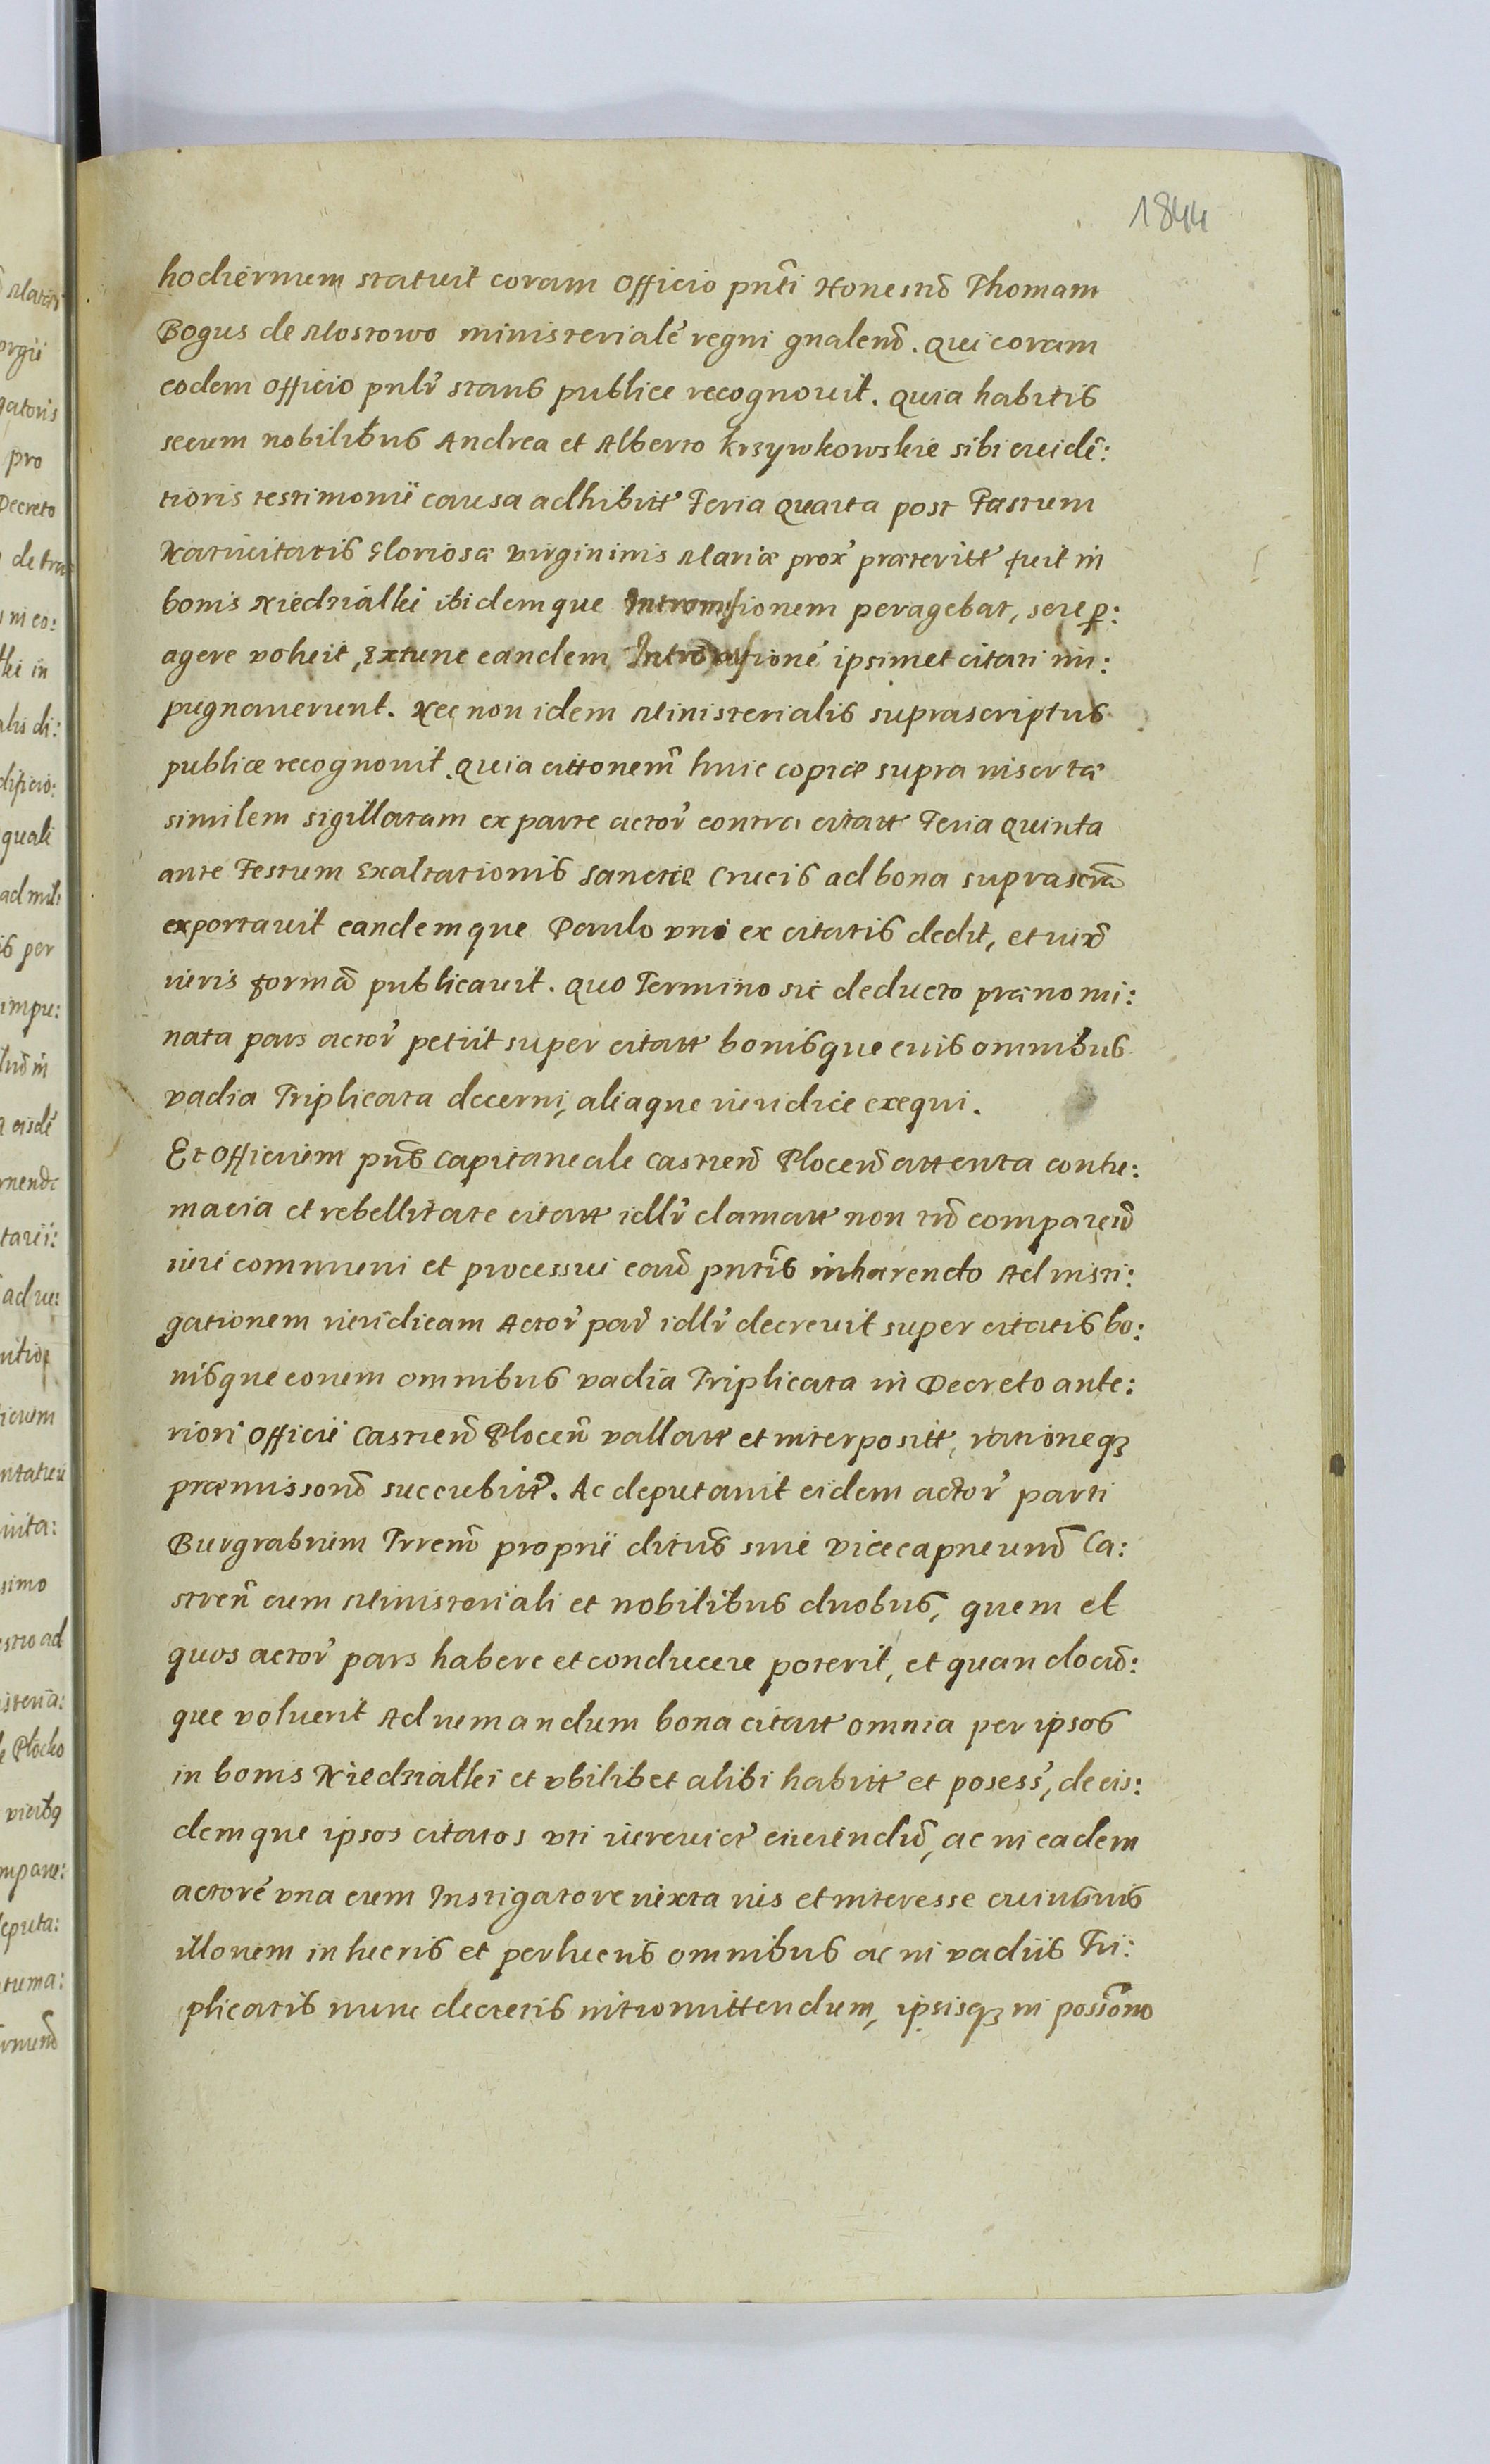 1844
hodiernum statuit coram Officio pnti Honestū Thomam
Bogus de Mostowo ministerialē regni gnalem̃. Qui coram
eodem Officio pnlr stans publice recognouit. Quia habitis
secum nobilibus Andrea et Alberto Krzywkowskie sibi euidē:
tioris testimonii causa adhibitt Feria Quarta post Fæstum
Natiuitatis Gloriosæ virgininis Mariæ prox præteritt fuit in
bonis Niedzialki ibidemque Intromissionem peragebat, seu p:
agere voluit, Extunc eandem Intromissionē ipsimet citati im:
pugnauerunt. Nec non idem Ministerialis suprascriptus
publicæ recognouit. Quia cittonem huic copiæ supra insertæ
similem sigillatam ex parte actor contra citatt Feria Quinta
ante Festum Exaltationis Sanctæ Crucis ad bona suprascrā
exportauit eandemque Paulo vni ex citatis dedit, et iuxā
iuris formā publicauit. Quo Termino sic deducto prænomi:
nata pars actor petiit super citatt bonisque euis omnibus
vadia Triplicata decerni, aliaque iuridice exequi.
Et Officium pns Capitaneale Castren Plocen attenta contu:
macia et rebellitate citatt idlr clamatt non tn comparen
iuri communi et processui caus pntis inhærendo Ad insti:
gationem iuridicam Actor par idlr decreuit super citatis bo:
nisque eorum omnibus vadia Triplicata in Decreto ante:
riori Officii Castren Plocen vallatt et interpositt, rationeq3
præmissorū succubitt. Ac deputauit eidem actor parti
Burgrabium Trrenū proprii ditus siue vicecapneum Ca:
stren cum Ministeriali et nobilibus duobus, quem et
quos actor pars habere et conducere poterit, et quandocū:
que voluerit Ad rumandum bona citatt omnia per ipsos
in bonis Niedzialki et vbilibet alibi habitt et posess, de eis:
demque ipsos citatos vti iureuict eiiciendū, ac in eadem
actorē vna cum Instigatore iuxta ius et interesse cuiusuis
illorum in lucris et perlucris omnibus ac in vadiis Tri:
plicatis nunc decretis intromittendum, ipsisq3 in possiono